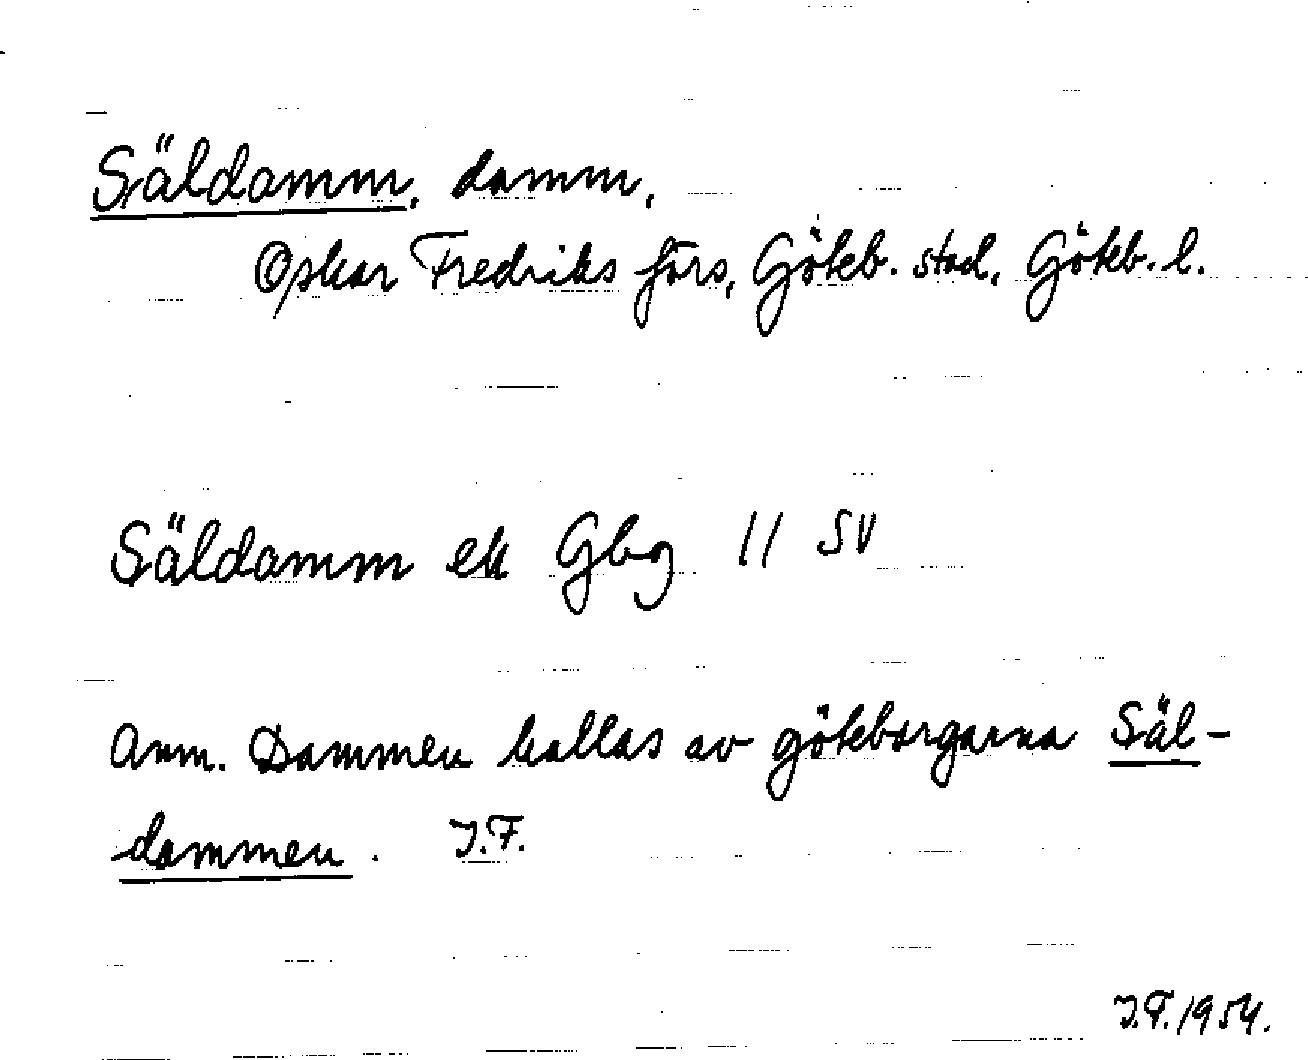 Säldamm, damm,
Oskar Fredriks förs, Göteb. stad, Göteb. l.
Säldamm ek Gbg 11 SV
Anm. Dammen kallas av göteborgarna Säl-
dammen. I.F.
I.F. 1954.